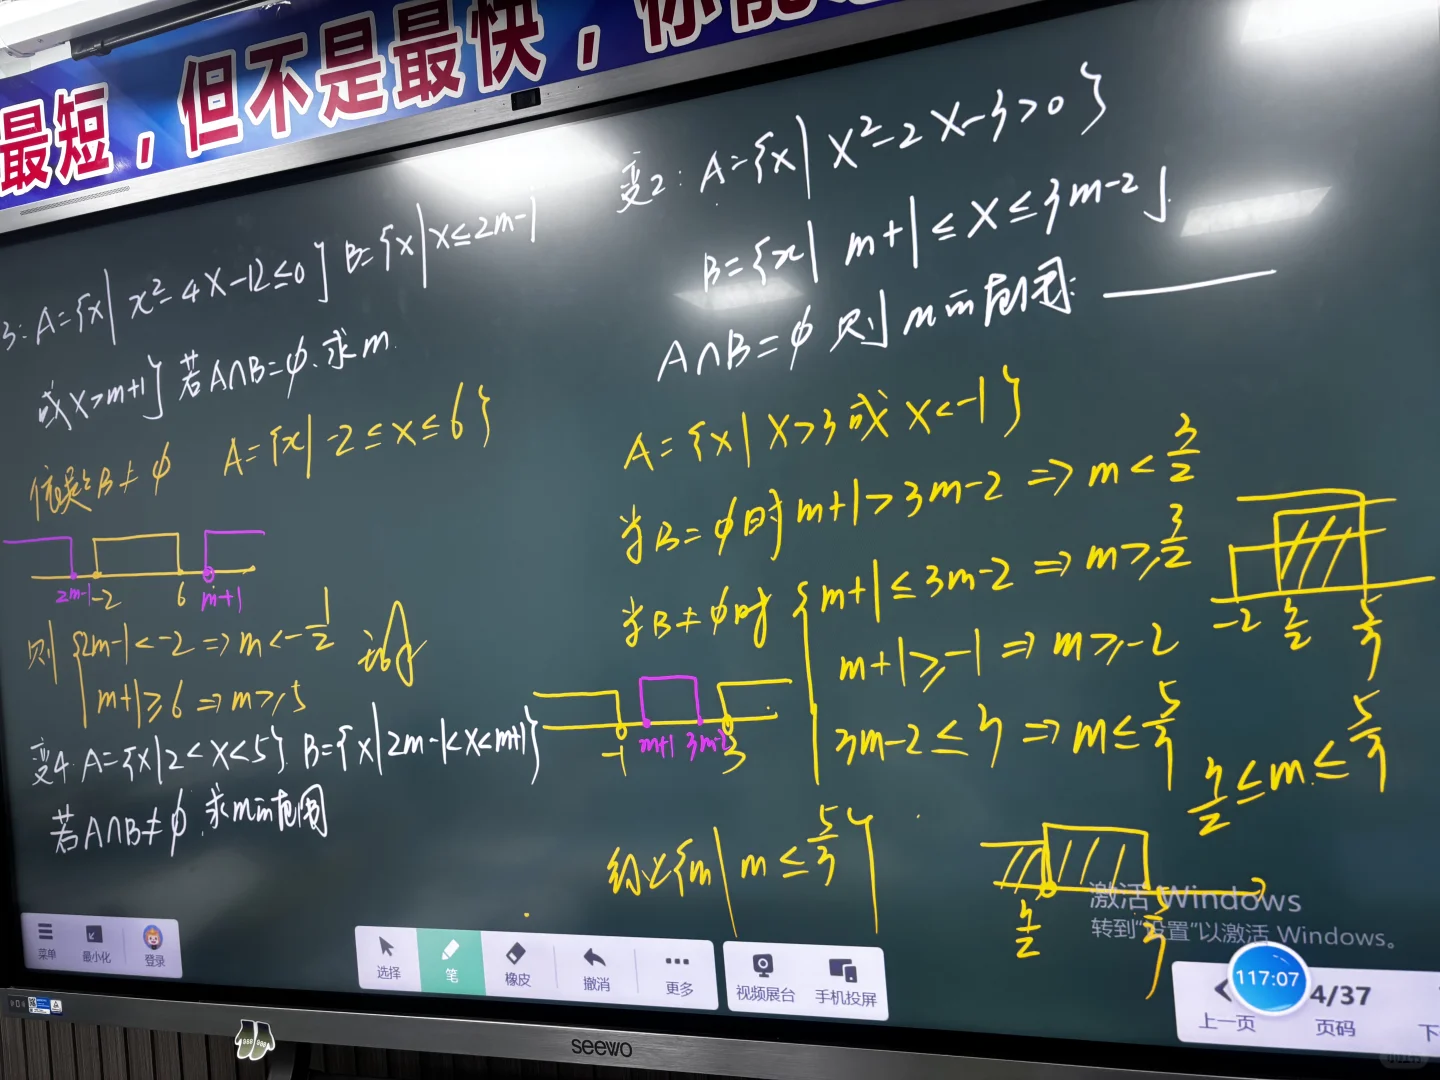 最短，但不是最快，你能
3: A={x| x²-4x-12≤0} B={x|x≤2m-1
或x>m+1} 若A∩B=φ.求m.
B≠φ A={x|-2≤x≤6}
2m-1 -2 6 m+1
则{2m-1<-2⇒m<-1/2
m+1≥6⇒m≥5
变4. A={x|2<x<5}. B={x|2m-1<x<m+1}
若A∩B≠φ.求m的范围
变2: A={x| x²-2x-3>0}
B={x| m+1≤x≤3m-2}.
A∩B=φ则m的范围:
A={x|x>3或x<-1}
当B=φ时m+1>3m-2⇒m<3/2
当B≠φ时{m+1≤3m-2⇒m≥3/2
m+1≥-1⇒m≥-2
3m-2≤3⇒m≤5/3
-1 m+1 3m-2 3
-2 3/2 5/3
3/2≤m≤5/3
综上{m|m≤5/3}
3/2 5/3
激活 Windows
转到"设置"以激活 Windows。
菜单 最小化 登录
选择 笔 橡皮 撤消 更多
视频展台 手机投屏
117:07
4/37
上一页 页码 下
seewo